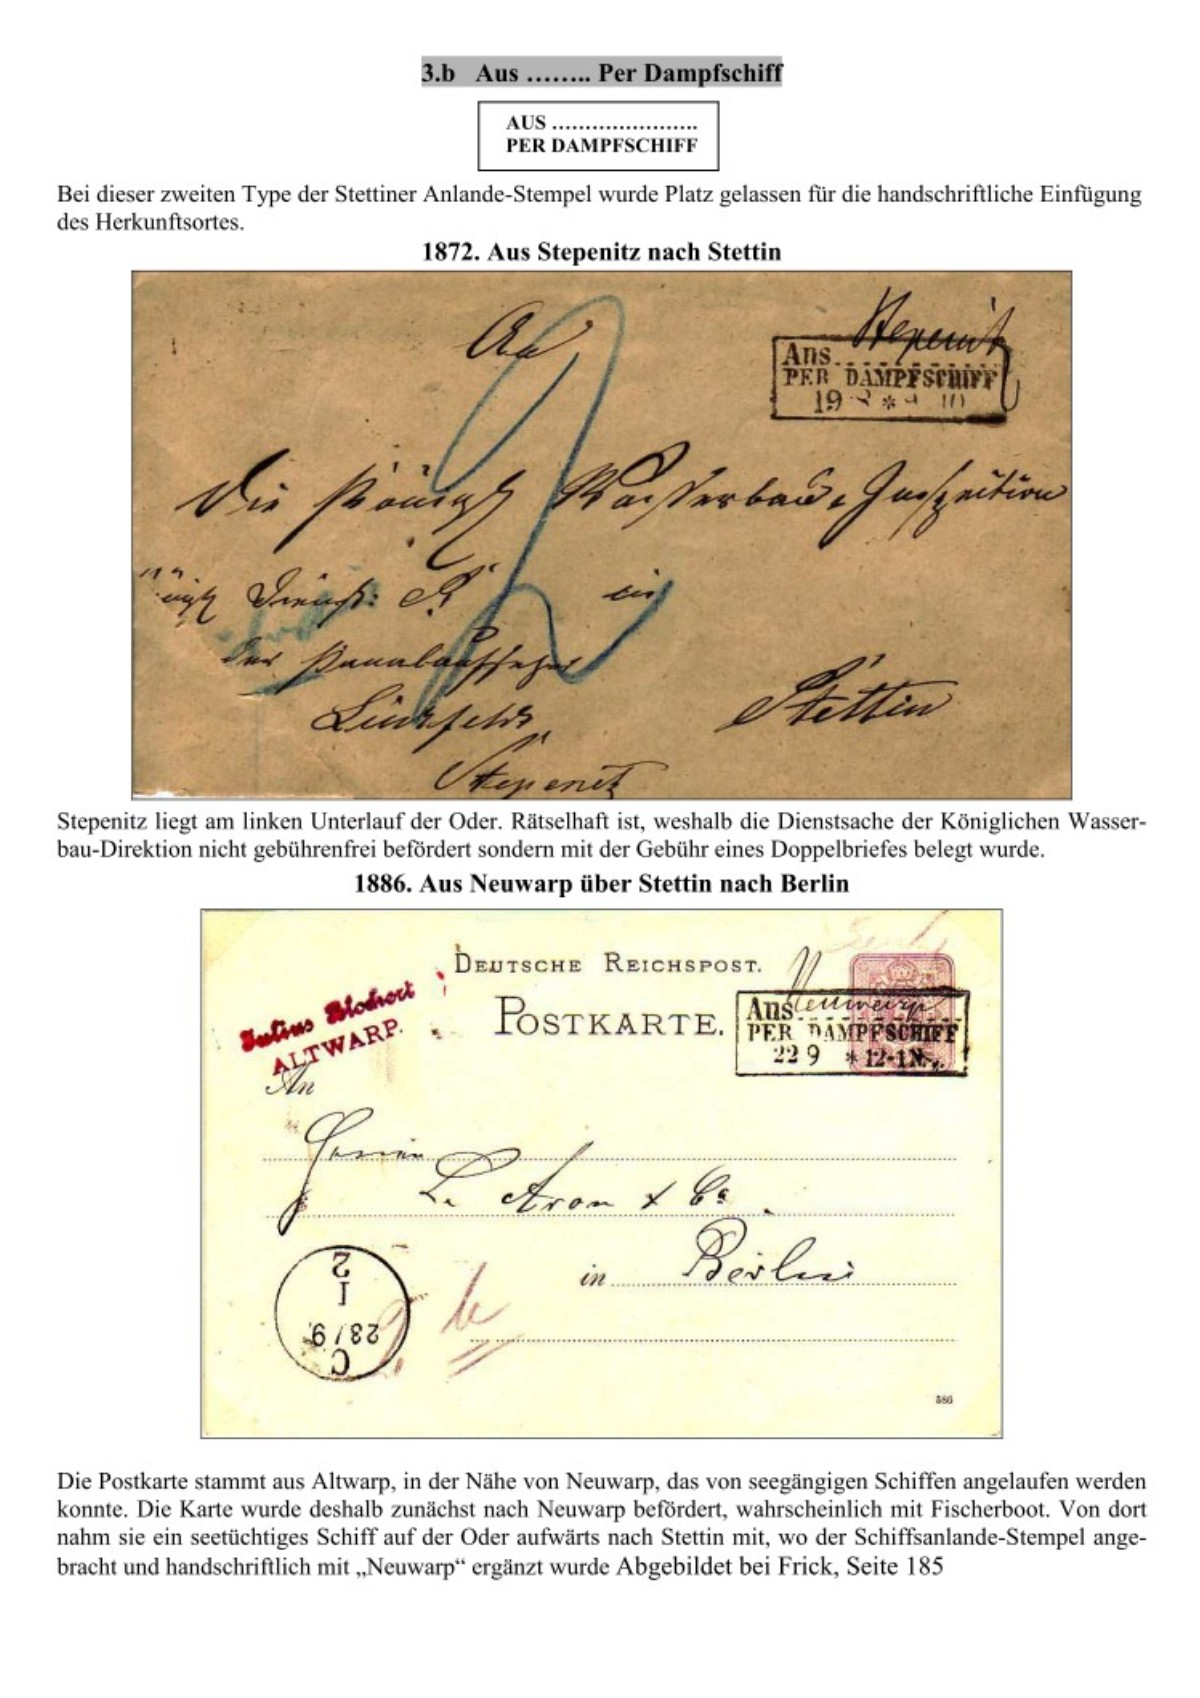 3.b Aus …….. Per Dampfschiff
AUS ………………….
PER DAMPFSCHIFF
Bei dieser zweiten Type der Stettiner Anlande-Stempel wurde Platz gelassen für die handschriftliche Einfügung
des Herkunftsortes.
1872. Aus Stepenitz nach Stettin
An
Stepenitz
Aus
PER DAMPFSCHIFF
19
Die Königl Wasserbau-Inspection
in
Stettin
Stepenitz
Stepenitz liegt am linken Unterlauf der Oder. Rätselhaft ist, weshalb die Dienstsache der Königlichen Wasser-
bau-Direktion nicht gebührenfrei befördert sondern mit der Gebühr eines Doppelbriefes belegt wurde.
1886. Aus Neuwarp über Stettin nach Berlin
DEUTSCHE REICHSPOST.
POSTKARTE.
Julius Blohert
ALTWARP.
Aus Neuwarp
PER DAMPFSCHIFF
22 9 * 12-1N.
An
Herren
L. Aron & Co
in Berlin
C
23/9
1
2
586
Die Postkarte stammt aus Altwarp, in der Nähe von Neuwarp, das von seegängigen Schiffen angelaufen werden
konnte. Die Karte wurde deshalb zunächst nach Neuwarp befördert, wahrscheinlich mit Fischerboot. Von dort
nahm sie ein seetüchtiges Schiff auf der Oder aufwärts nach Stettin mit, wo der Schiffsanlande-Stempel ange-
bracht und handschriftlich mit „Neuwarp“ ergänzt wurde Abgebildet bei Frick, Seite 185